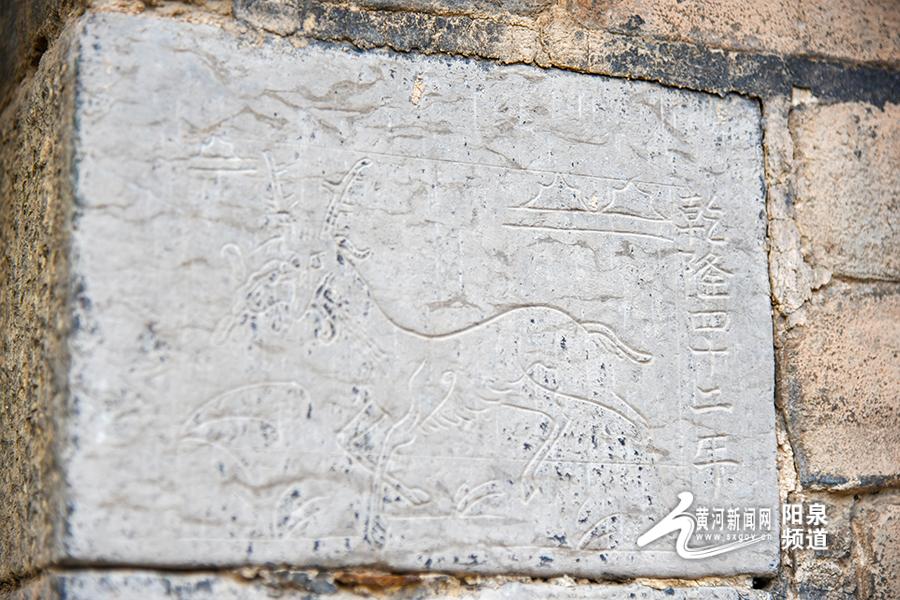 乾隆四十二年
黄河新闻网
www.sxgov.cn
阳泉
频道